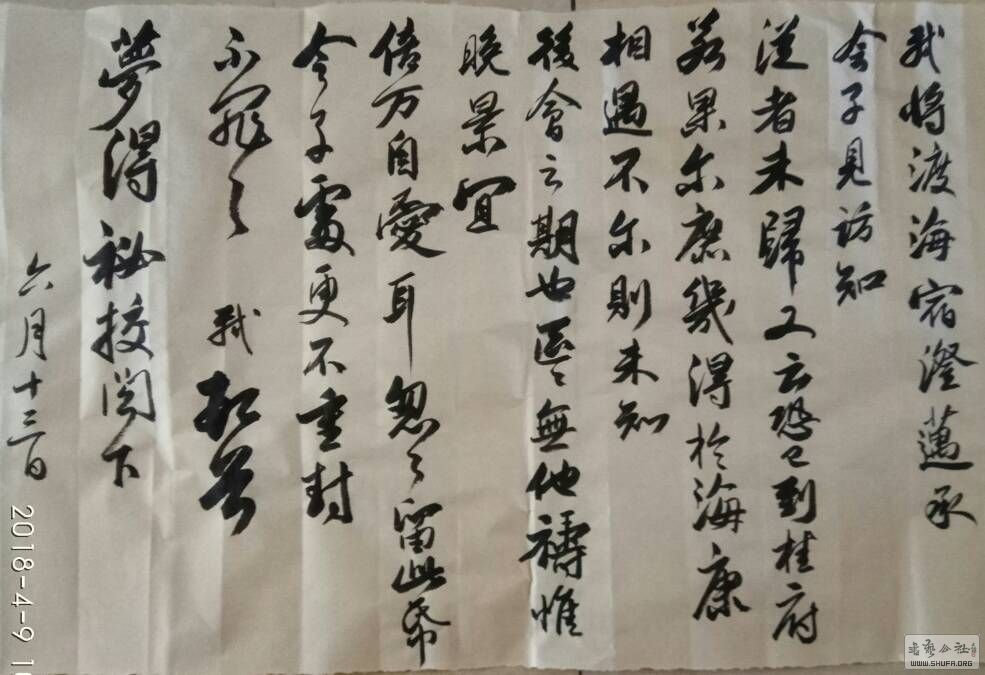 軾將渡海宿澄邁承
令子見訪知
從者未歸又云恐已到桂府
若果尔庶幾得於海康
相遇不尔則未知
後會之期也區〻無他禱惟
晚景宜
倍万自愛耳忽〻留此帋
令子處更不重封
不罪〻 軾頓首
夢得祕校閣下
六月十三日
2018-4-9
書藝公社
WWW.SHUFA.ORG